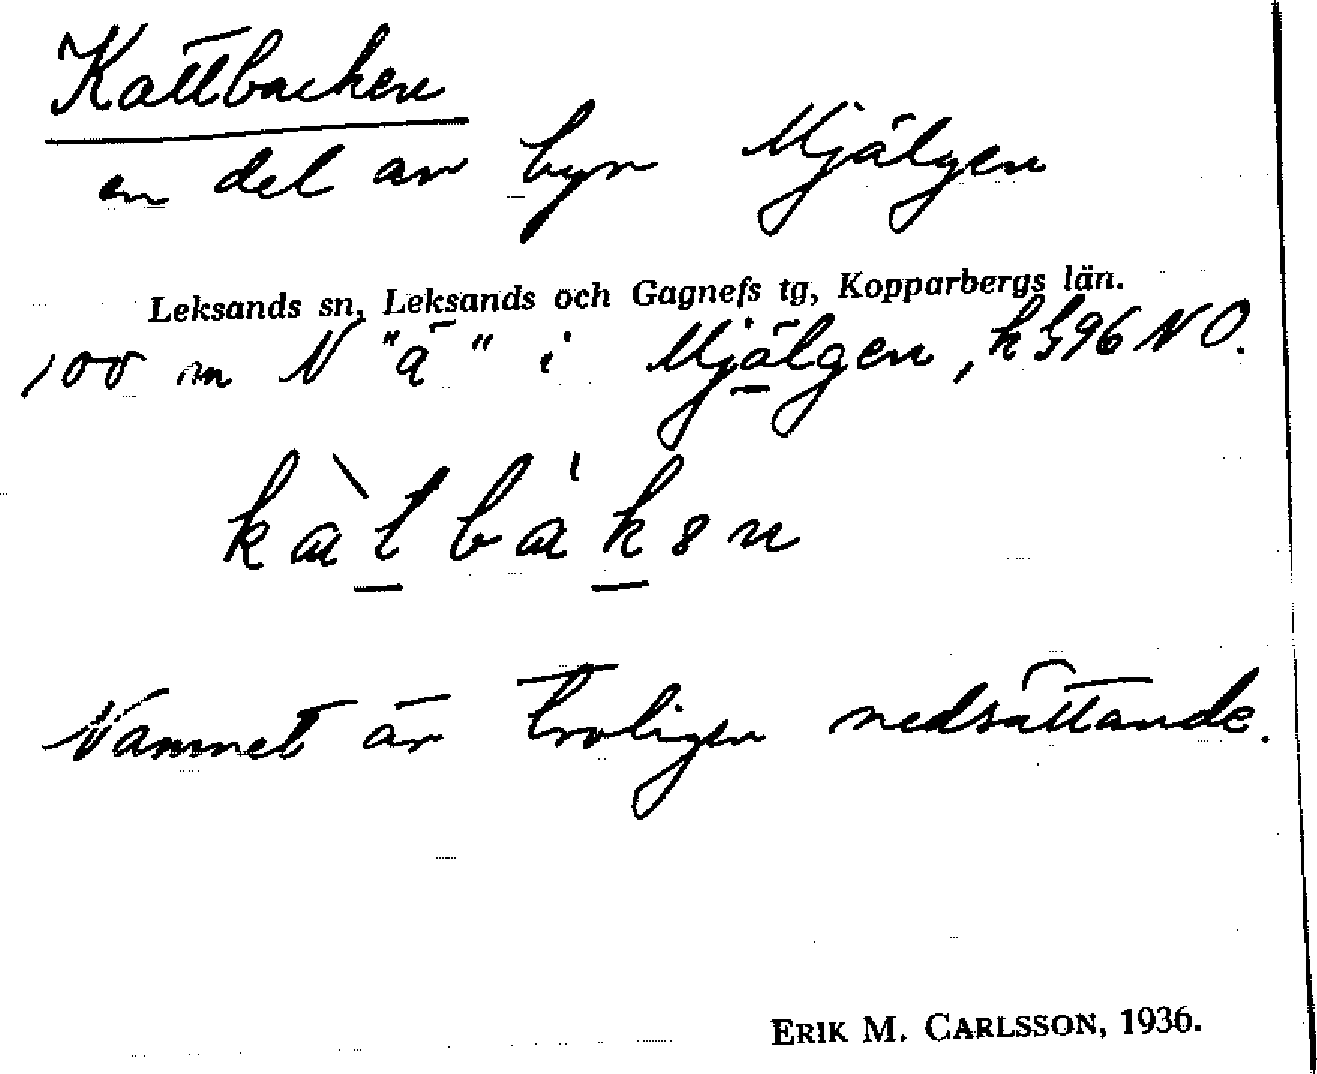 Kattbacken
en del av byn Mjälgen
Leksands sn, Leksands och Gagnefs tg, Kopparbergs län.
100 m N "ä" i Mjälgen, 96 NO.
kàt bákən
Namnet är troligen nedsättande.
ERIK M. CARLSSON, 1936.